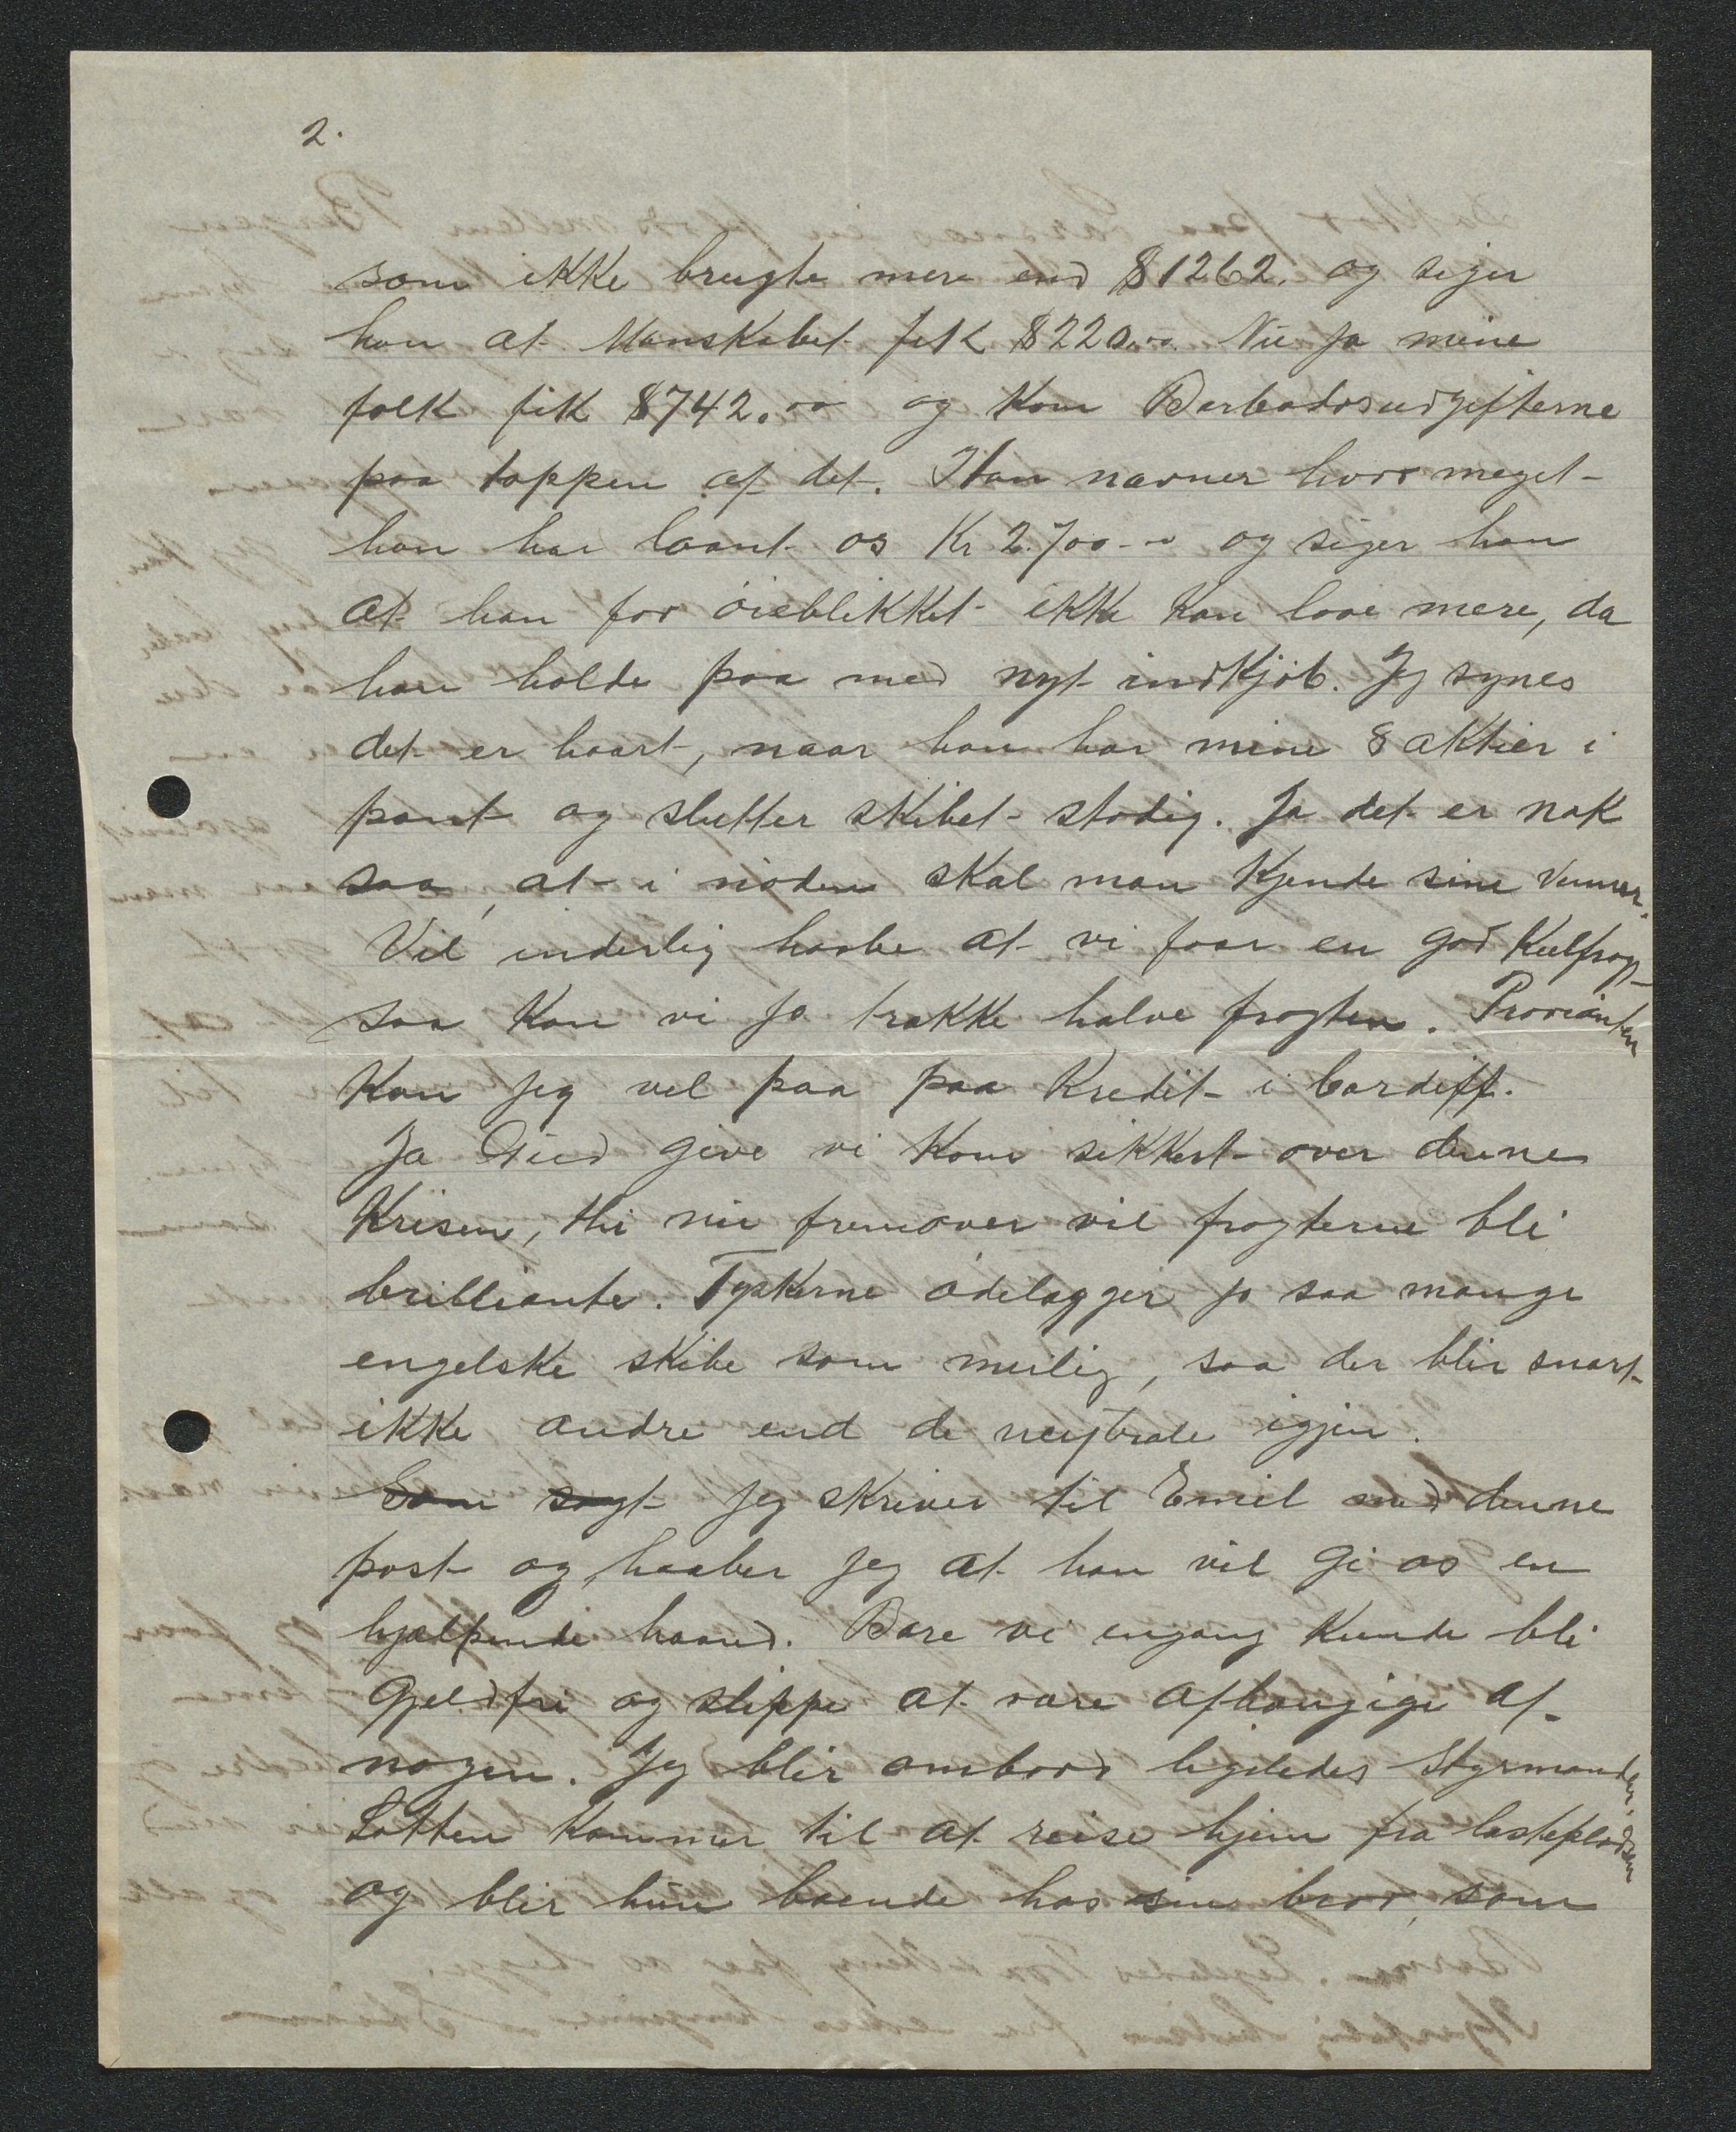 2.
som ikke brugte mere end $1262. og siger
han at Manskabet fik $220.00. Nu ja mine
folk fik $742.00 og kom Barbadosudgifterne
paa toppen af det. Han nævner hvor meget
han har laant os Kr 2.700-- og siger han
at han for öieblikket ikke kan love mere, da
han holde paa med nyt indkjöb. Jeg synes
det er haart, naar han har mine 8 aktier i
pant og slutter skibet stadig. Ja det er nok
saa, at i nöden skal man kjende sine venner.
Vil inderlig haabe at vi faar en god Kulfragt
saa kan vi jo trække halve fragten. Provianten
kan jeg vel faa paa Kredit i Cardiff.
Ja Gud give vi kom sikkert over denne
Krisen, thi nu fremover vil fragterne bli
brilliante. Tyskerne ödelægger jo saa mange
engelske skibe som mulig, saa der blir snart
ikke andre end de neytrale igjen.
Som sagt jeg skriver til Emil med denne
post og haaber jeg at han vil gi os en
hjælpende haand. Bare vi engang kunde bli
Gjeldfri og slippe at være afhængige af
nogen. Jeg blir ombord ligeledes Styrmanden,
Lotten kommer til at reise hjem fra lastepladsen
og blir hun boende hos sin bror, som